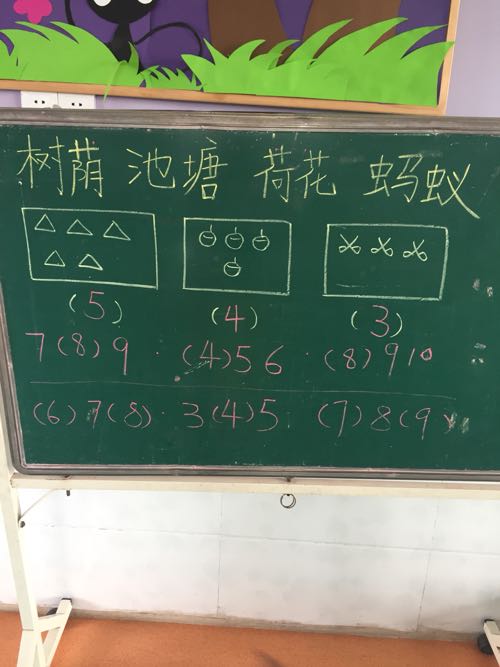 树荫 池塘 荷花 蚂蚁
(5) (4) (3)
7(8)9 · (4)56 · (8)910
(6)7(8) · 3(4)5 (7)8(9)